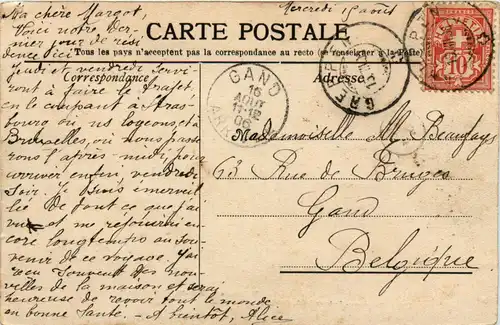 Ma chère Margot,
Mercredi 15 août
Voici notre der-
nier jour de rési-
dence ici
CARTE POSTALE
Tous les pays n'acceptent pas la correspondance au recto (se renseigner à la Poste)
jeudi et vendredi servi-
Correspondance
Adresse
ront à faire le trajet,
en le coupant à Stras-
bourg où ns logeons, et
Bruxelles, où nous pas-
sons l'après-midi, pour
arriver enfin, vendredi
soir. Je suis émerveil
lée de tout ce que j'ai
vu et me réjouirai en-
core longtemps au sou-
venir de ce voyage. J'ai
reçu souvent des nou-
velles de la maison et serai
heureuse de revoir tout le monde
en bonne santé. - A bientôt, Alice
GAND
16
AOUT
06
10
Mademoiselle M. Beaufays
63 Rue de Bruges
Gand
Belgique